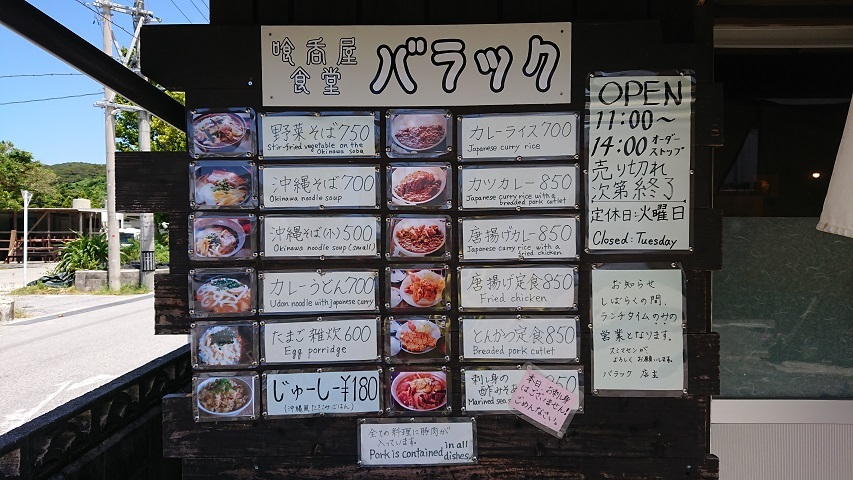 喰呑屋
食堂
バラック
野菜そば750
Stir-fried vegetable on the
Okinawa soba
沖縄そば700
Okinawa noodle soup
沖縄そば(小)500
Okinawa noodle soup (small)
カレーうどん700
Udon noodle with japanese curry
たまご雑炊600
Egg porridge
じゅーしー¥180
(沖縄風たきこみごはん)
カレーライス700
Japanese curry rice
カツカレー850
Japanese curry rice with a
breaded pork cutlet
唐揚げカレー850
Japanese curry rice with a
fried chicken
唐揚げ定食850
Fried chicken
とんかつ定食850
Breaded pork cutlet
刺し身の
酢みそあ
850
Marined sea
本日、お刺身
はございません!
ごめんなさい。
全ての料理に豚肉が
入っています。
Pork is contained in all
dishes.
OPEN
11:00~
14:00 オーダー
ストップ
売り切れ
次第終了
定休日:火曜日
Closed:Tuesday
お知らせ
しばらくの間、
ランチタイムのみの
営業となります。
スミマセンが
よろしくお願いします。
バラック 店主